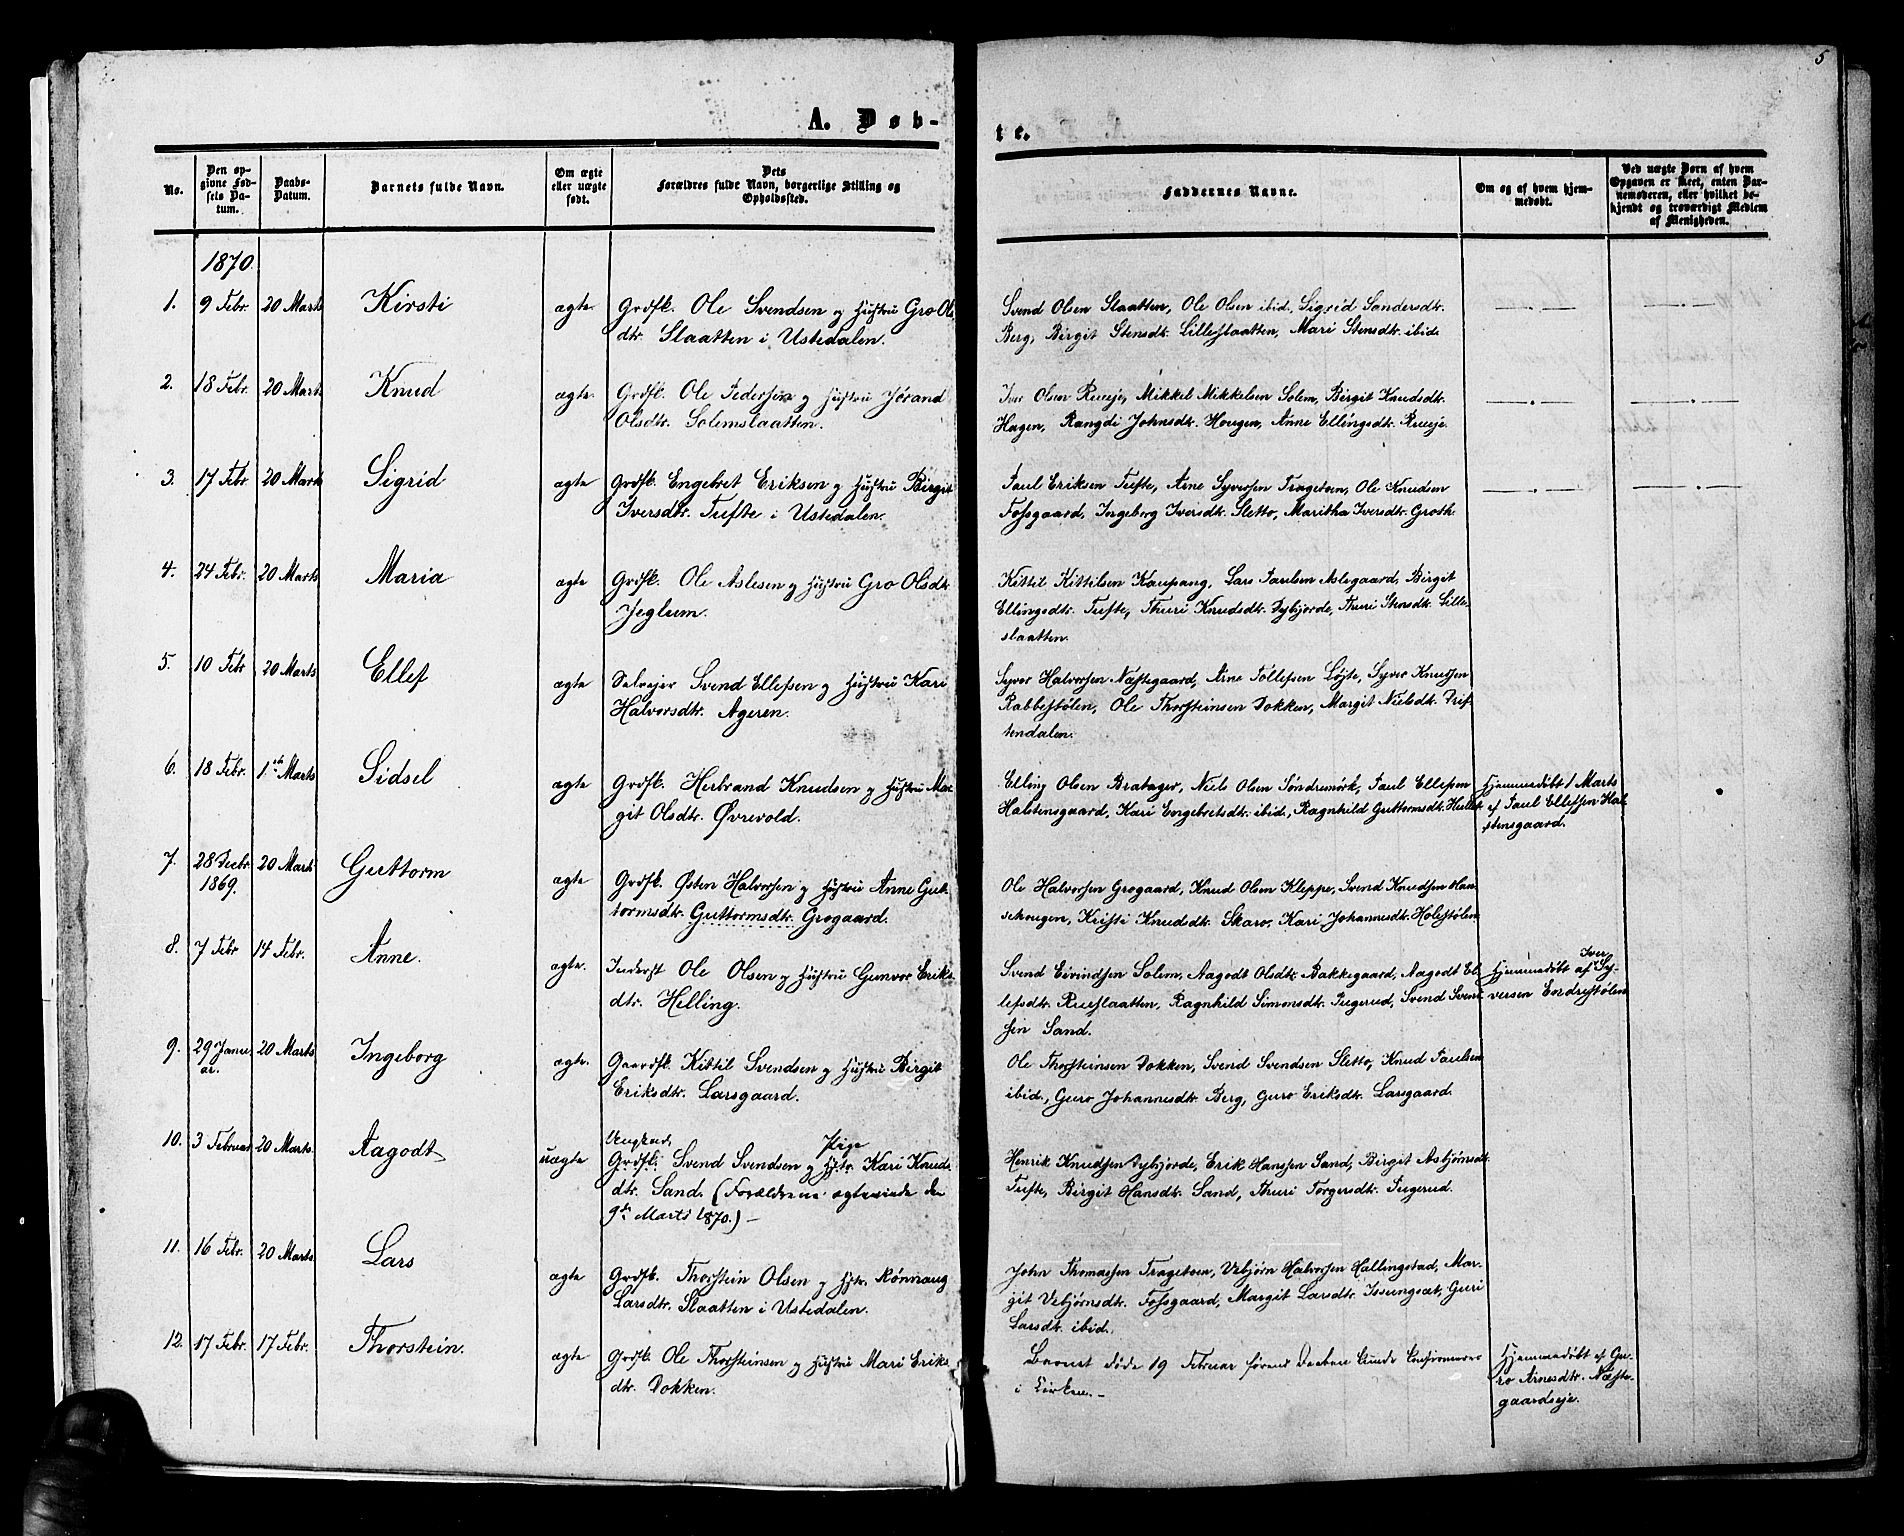 5
A. Døb-
te.
No.
Den op-
givne Fød-
sels Da-
tum.
Daabs-
Datum.
Barnets fulde Navn.
Om ægte
eller uægte
født.
Dets
Forældres fulde Navn, borgerlige Stilling og
Opholdssted.
Faddernes Navne.
Om og af hvem hjem-
medøbt.
Ved uægte Børn af hvem
Opgaven er skeet, enten Bar-
nemoderen, eller hvilket be-
kjendt og troværdigt Medlem
af Menigheden.
1870.
1. 9 Febr. 20 Marts Kirsti ægte Grdfk. Ole Svendsen og Hustru Gro Ols
dtr. Slaatten i Ustedalen.
Svend Olsen Slaatten, Ole Olsen ibid., Sigrid Sandersdtr.
Berg, Birgit Stensdtr. Lilleslaatten, Mari Stensdtr. ibid.
2. 18 Febr. 20 Marts Knud ægte. Grdfk. Ole Pedersen og Hustru Jørand
Olsdtr. Solemslaatten.
Iver Olsen Rueeje, Mikkel Mikkelsen Solem, Birgit Knudsdtr.
Hagen, Rangdi Johnsdtr. Hougen, Anne Ellingsdtr. Rueeje.
3. 17 Febr 20 Marts Sigrid ægte Grdfk. Engebret Eriksen og Hustru Birgit
Iversdtr. Tufte i Ustedalen.
Paul Eriksen Tufte, Arne Syversen Trageton, Ole Knudsen
Fossgaard, Ingeborg Iversdtr. Sletto, Maritha Iversdtr. Groth.
4. 24 Febr. 20 Marts Maria ægte Grdfk. Ole Aslesen og Hustru Gro Olsdtr
Jeglum.
Kittil Kittilsen Kaupang, Lars Paulsen Aslegaard, Birgit
Ellingsdtr. Tufte, Thuri Knudsdtr. Dybjorde, Thuri Stensdtr. Lille-
slaatten.
5. 10 Febr 20 Marts Ellef ægte Selvejer Svend Ellefsen og Hustru Kari
Halvorsdtr. Ageren.
Syver Halvorsen Næstegaard, Arne Tollefsen Løjte, Syver Knudsen
Rabbestølen, Ole Thorsteinsen Dokken, Margit Nielsdtr. Drif-
tendalen.
6. 18 Febr. 1ste Marts Sidsel ægte Grdfk. Herbrand Knudsen og Hustru Mar-
git Olsdtr. Øvrevold.
Elling Olsen Bratager, Niels Olsen Søndremørk, Paul Ellefsen
Halstensgaard, Kari Engebretsdtr. ibid., Ragnhild Guttormsdtr. Hullet
Hjemmedøbt 1 Marts
af Paul Ellefsen Hal-
stensgaard.
7. 28 Decbr. 20 Marts Guttorm
1869.
ægte Grdfk. Østen Halvorsen og Hustru Anne Gut-
tormsdtr. Guttormsdtr. Grogaard.
Ole Halvorsen Grogaard, Knud Olsen Kleppe, Svend Knudsen Han-
sehougen, Kristi Knudsdtr. Skaro, Kari Johannesdtr. Holestølen.
8. 7 Febr 14 Febr. Anne. ægte. Inderst Ole Olsen og Hustru Gunvor Eriks-
dtr. Helling.
Svend Eivindsen Solem, Aagodt Olsdtr. Bakkegaard, Aagodt El-
lefsdtr. Rueslaatten, Ragnhild Simonsdtr. Tugerud, Svend Svend
sen Sand.
Iver
Hjemmedøbt af Sy-
versen Endrestølen
9. 29 Janu- 20 Marts Ingeborg
ar.
ægte. Gaardfk. Kittil Svendsen og Hustru Birgit
Eriksdtr. Larsgaard.
Ole Thorsteinsen Dokken, Svend Svendsen Sletto, Knud Paulsen
ibid., Guro Johannesdtr. Berg, Guro Eriksdtr. Larsgaard.
10. 3 Februar 20 Marts. Aagodt uægte
Ungkarl, Pige
Grdfk. Svend Svendsen og Hstr. Kari Knuds
dtr. Sand. (Forældrene ægteviede den
9de Marts 1870.) –
Henrik Knudsen Dybjorde, Erik Hanssen Sand, Birgit Asbjørnsdtr.
Tufte, Birgit Hansdtr. Sand, Thuri Torgersdtr. Tugerud.
11. 16 Febr. 20 Marts. Lars ægte Grdfk. Thorstein Olsen og Hstr. Rønnaug
Larsdtr. Slaatten i Ustedalen.
John Thomassen Trageton, Vebjørn Halvorsen Hallingstad, Mar-
git Vebjørnsdtr. Fossgaard, Margit Larsdtr. Issungsæt, Guri
Larsdtr. ibid.
12. 17 Febr. 17 Febr. Thorstein. ægte Grdfk. Ole Thorsteinsen og Hustru Mari Eriks
dtr. Dokken.
Barnet døde 19 Februar førend Daaben kunde confirmeres
i Kirken. –
Hjemmedøbt af Gu-
ro Arnesdtr. Næste-
gaardseje.